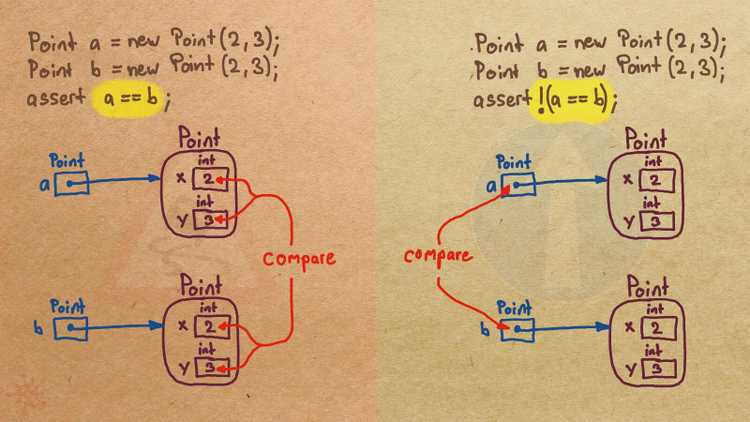 Point a = new Point(2,3);
Point b = new Point(2,3);
assert a == b;
Point
Point
a
int
x 2
int
y 3
compare
Point
Point
b
int
x 2
int
y 3
Point a = new Point(2,3);
Point b = new Point(2,3);
assert !(a == b);
Point
Point
a
int
x 2
int
y 3
compare
Point
Point
b
int
x 2
int
y 3